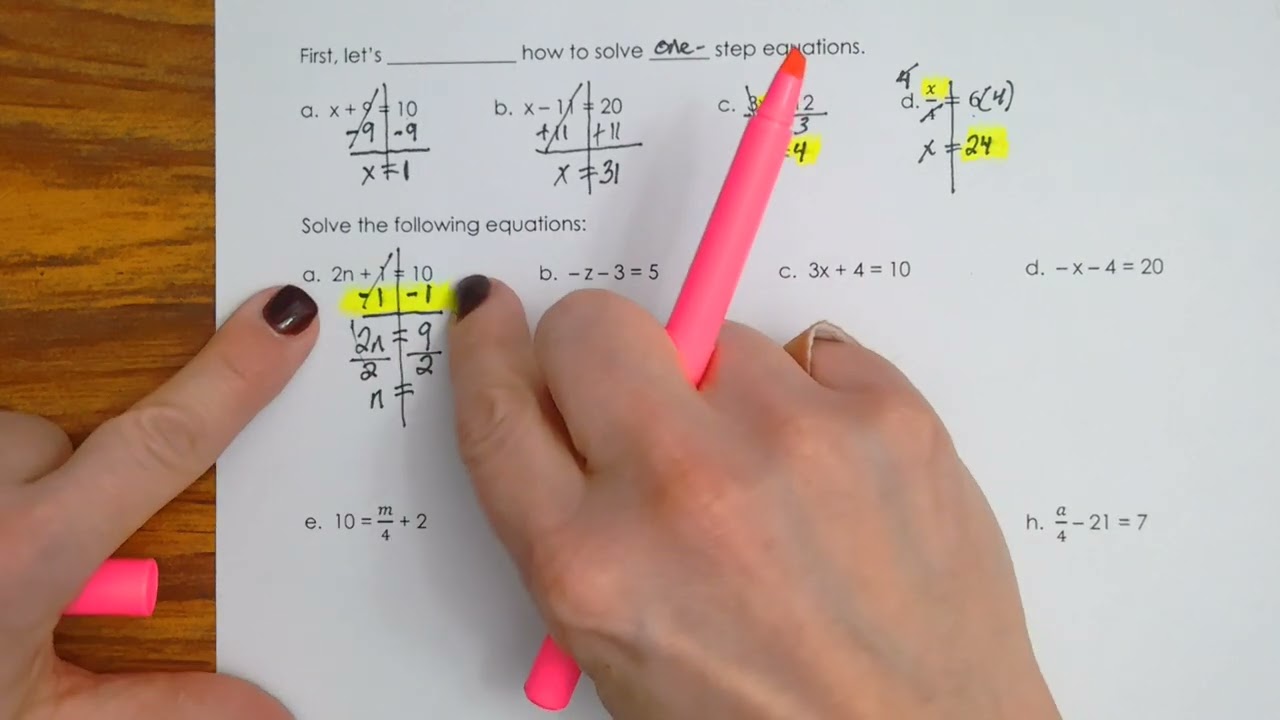 First, let's ____________ how to solve one- step equations.
a. x + 9 = 10
-9 -9
x = 1
b. x - 11 = 20
+11 +11
x = 31
c. 3x 12
3
= 4
4
d. x/4 = 6(4)
x = 24
Solve the following equations:
a. 2n + 1 = 10
-1 -1
2n = 9
2 2
n =
b. -z - 3 = 5
c. 3x + 4 = 10
d. -x - 4 = 20
e. 10 = m/4 + 2
h. a/4 - 21 = 7